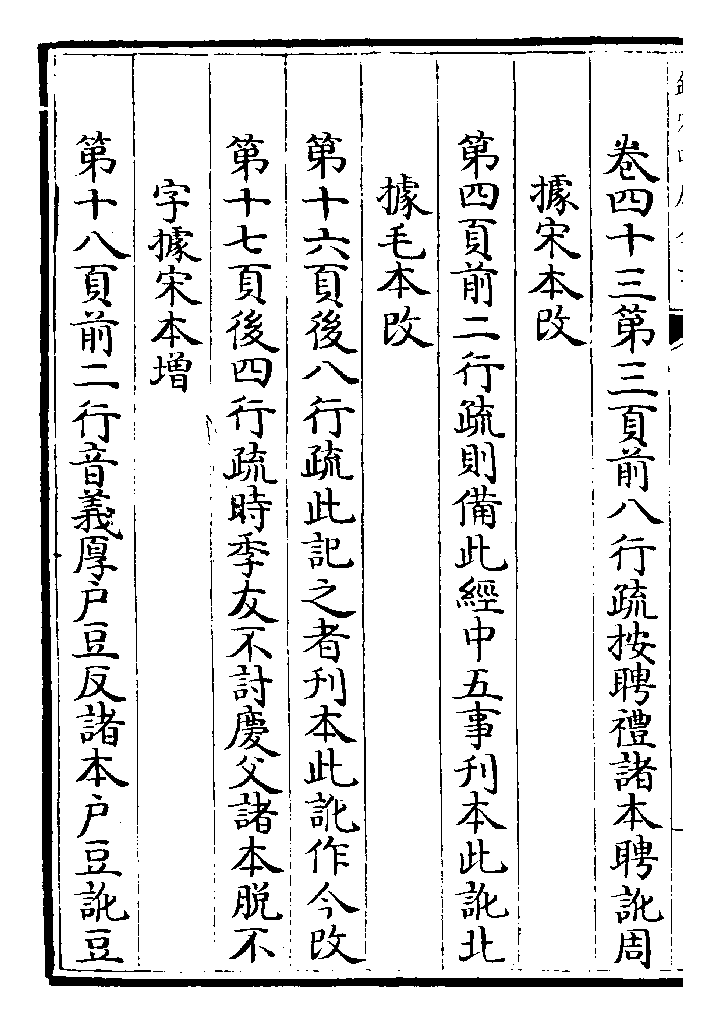 卷四十三第三頁前八行疏按聘禮諸本聘訛周
據宋本改
第四頁前二行疏則備此經中五事刊本此訛北
據毛本改
第十六頁後八行疏此記之者刊本此訛作今改
第十七頁後四行疏時季友不討慶父諸本脫不
字據宋本增
第十八頁前二行音義厚戶豆反諸本戶豆訛豆